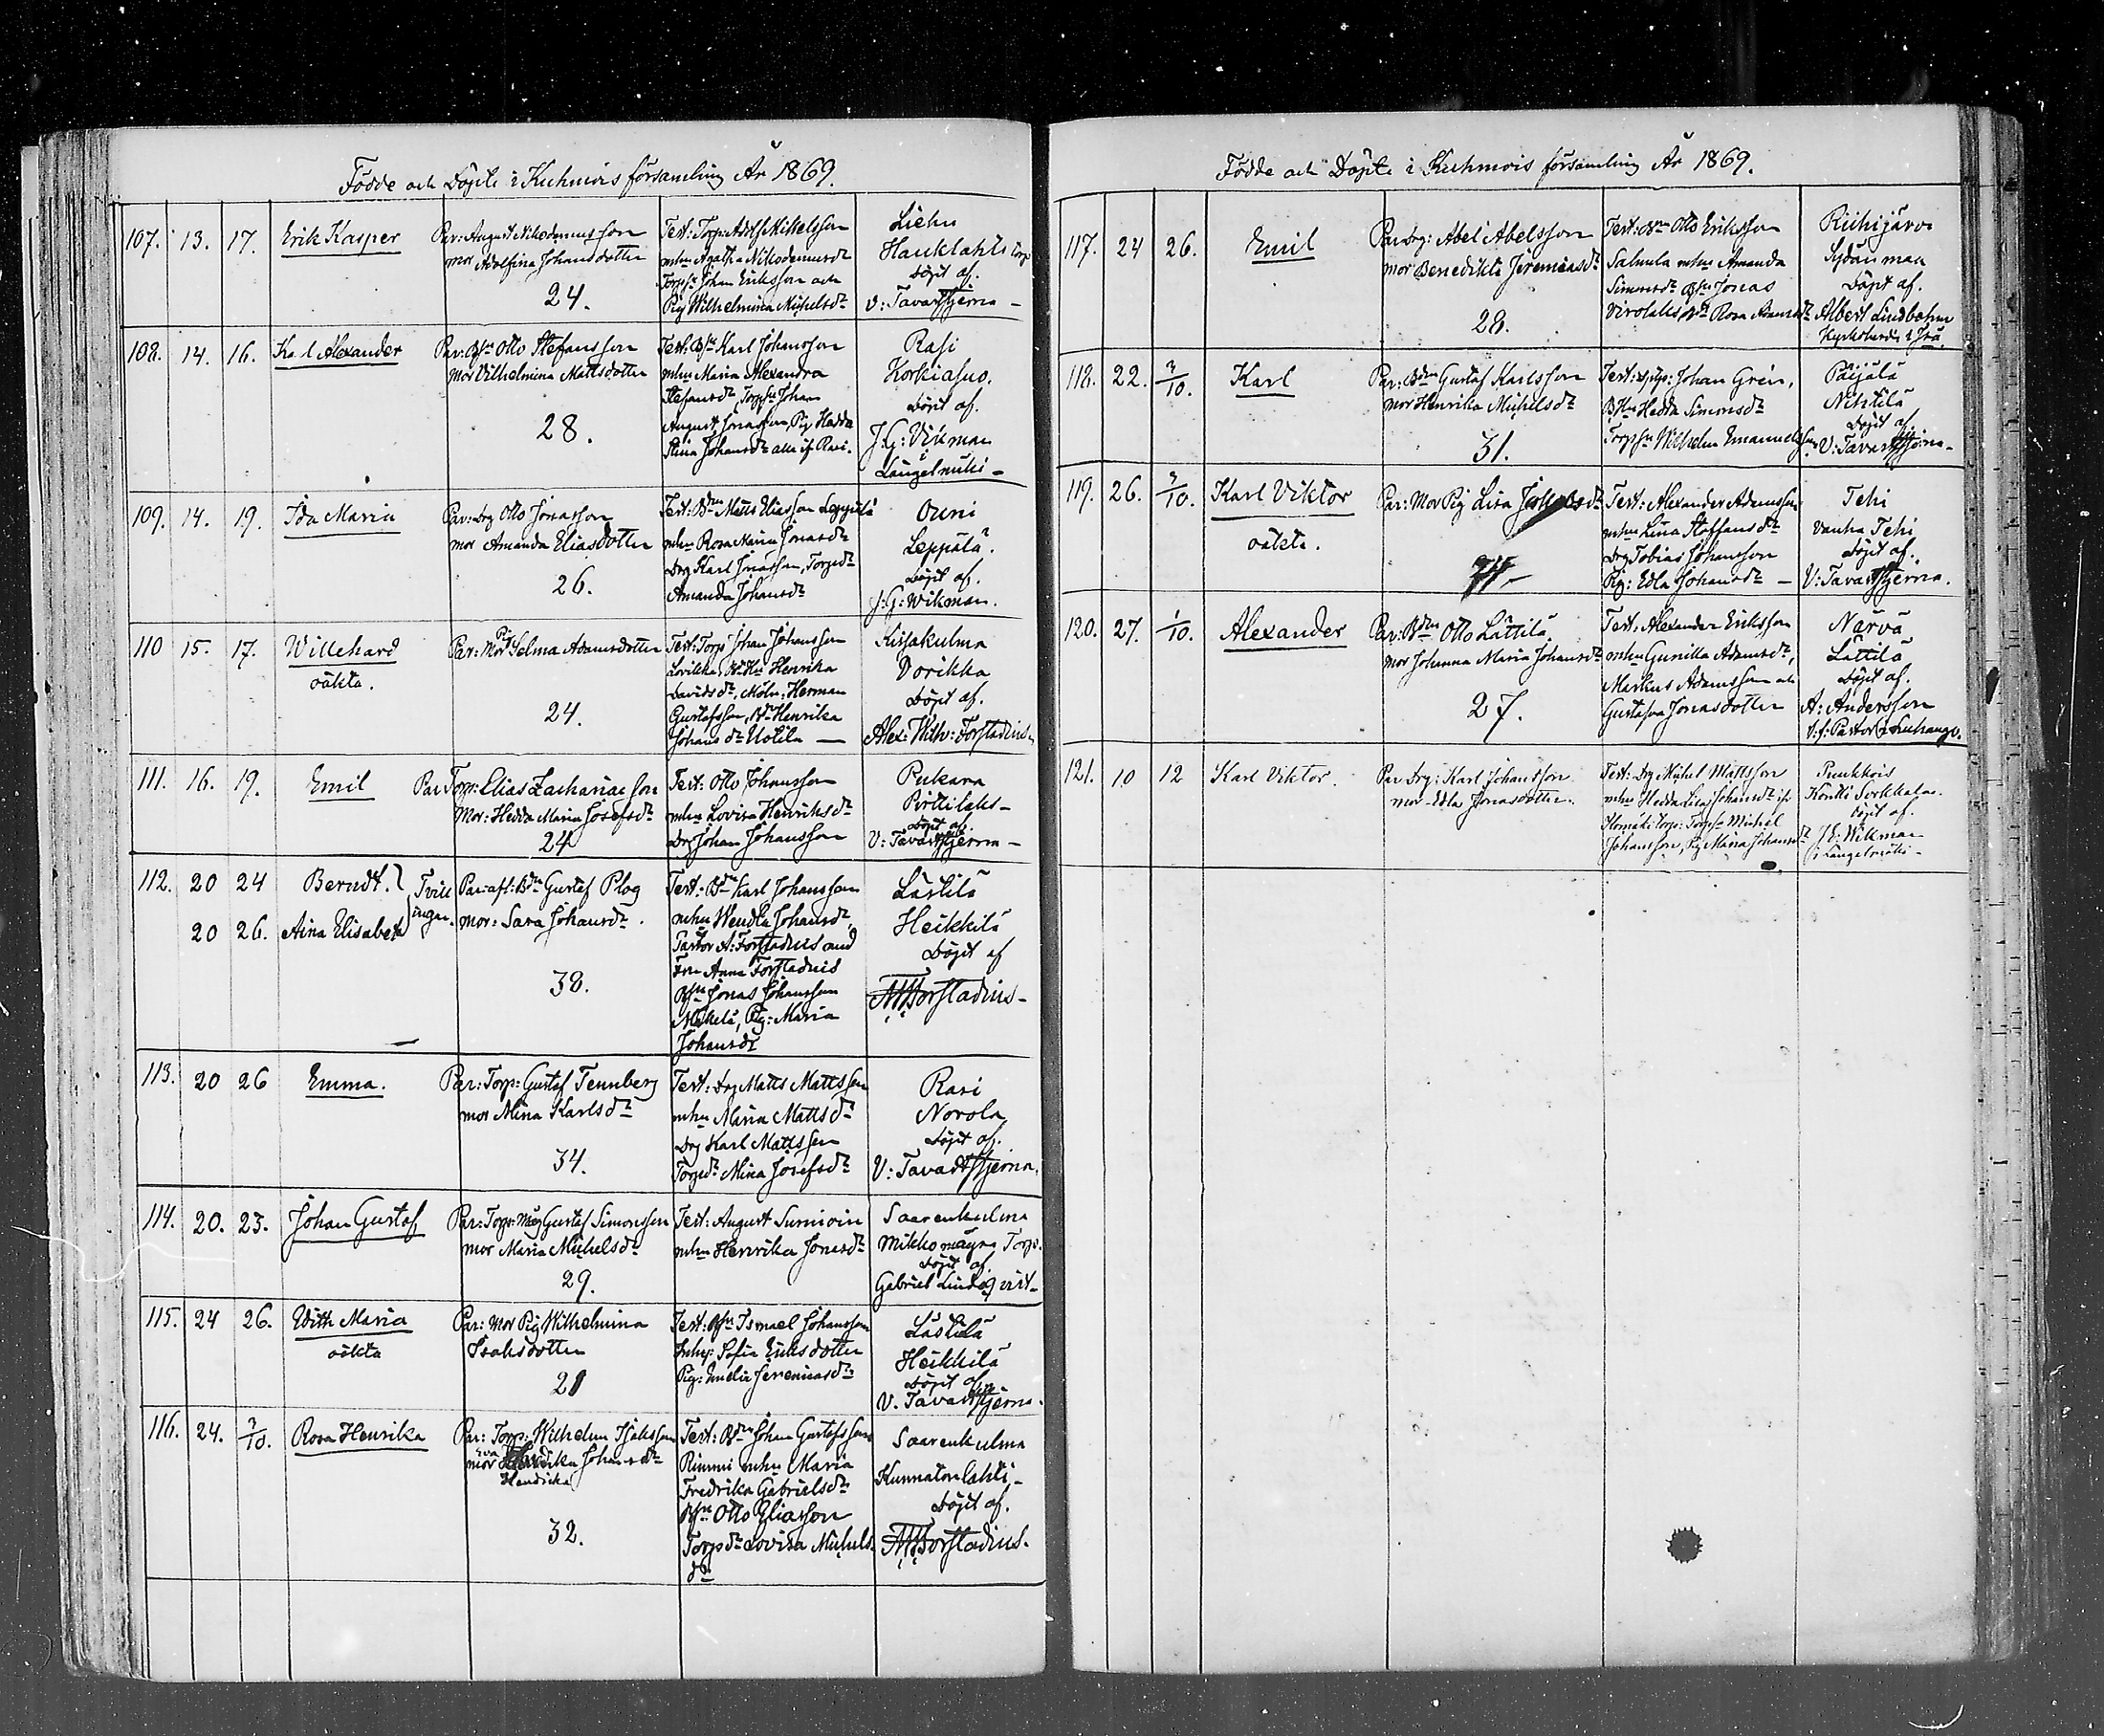 Födde och Döpte i Kuhmois församling År 1869.
107. 13. 17. Erik Kasper
Par: August Nikodemusson
mor Adolfina Johansdotter
24.
Test: Torp: Adolf Mikkelsson
mhu Agatha Nikodemusdr
Torps: Johan Eriksson och
Pig Wilhelmina Michelsdr
Liehu
Hauklahti torp
Döpt af.
V: Tavaststjerna –
108. 14. 16. Karl Alexander
Par: Bsn Otto Stefansson
Mor Vilhelmina Mattsdotter
28.
Test: Bsn Karl Johansson
mhu Maria Alexandra
Stefansdr, Torpsn Johan
August Jonasson, Pig Hedda
Stina Johansdr alla if. Rasi.
Rasi
Korkiasuo.
Döpt af.
J. G: Vikman
i Längelmäki –
109. 14. 19. Ida Maria
Par: Drg Otto Jonasson
mor Amanda Eliasdotter
26.
Test: Bdn Matts Eliasson Leppälä
mhu Rosa Maria Jonasdr
Drg Karl Jonasson, Torpdr
Amanda Johansdr
Ouni
Leppälä.
Döpt af.
J. G: Wikman.
110 15. 17. Willehard
oäkta.
Par: Mor Pig Selma Adamsdotter
24.
Test: Torp Johan Johansson
Henrika
Davidsdr, Herman
Gustafsson, Henrika
Johansdr Uotila —
Kissakulma
Vorikka
Döpt af
Alex: Wilh: Forstadius.
111. 16. 19. Emil
Par Torp: Elias Zachariasson
Mor: Hedda Maria Josefsdr
24
Test: Otto Johansson
mhu Lovisa Henriksdr
Drg Johan Johansson
Pukara
Pirttilaks –
Döpt af.
V: Tavaststjerna –
112. 20 24 Berndt.
20 26. Aina Elisabet
Tvill
ingar.
Par: afl: Bdn Gustaf Plog
mor: Sara Johansdr.
38.
Test: Bdn Karl Johansson
mhu Wendla Johansdr,
Pastor A: Forstadius and
Fru Anna Forstadius
Bsn Jonas Johansson
Mäkelä, Pig: Maria
Johansdr
Lästilä
Heikkilä
Döpt af
AWForstadius –
113. 20 26 Emma.
Par: Torp: Gustaf Tennberg
mor Mina Karlsdr
34.
Test: Drg Matts Mattsson
mhu Maria Mattsdr
Drg Karl Mattsson
Torpdr Mina Josefsdr
Rasi
Norola
Döpt af.
V: Tavaststjerna.
114. 20. 23. Johan Gustaf
Par: Torp: Måg Gustaf Simonsson
mor Maria Michelsdr
29.
Test: August Sunioin
mhu Henrika Jonasdr
Saarenkulma
Mikkomäyra Torp.
Döpt af
Gabriel Lindqvist –
115. 24 26. Edith Maria
oäkta
Par: Mor Pig Wilhelmina
Isaksdotter
21
Test: Bsn Ismael Johansson
Inhy: Sofia Eriksdotter
Pig: Amelia Jeremiasdr
Lästilä
Heikkilä
Döpt af
V. Tavaststjerna.
116. 24. 3/10. Rosa Henrika
Par: Torp: Wilhelm Isaksson
mor Eva Johansdr
Hendrika
32.
Test: Bdn Johan Gustafsson
Rimmi mhu Maria
Fredrika Gabrielsdr
Bsn Otto Eliasson
Torpdr Lovisa Michels.
dr
Saarenkulma
Kunnatonlahti –
Döpt af.
AWForstadius.
Födde och Döpte i Kuhmois församling År 1869.
117. 24 26. Emil
Par Drg: Abel Abelsson
mor Benedikta Jeremiasdr
28.
Test: Bsn Otto Eriksson
Salmela mhu Amanda
Simonsdr Bsn Jonas
Rosa Adamsdr
Riihijärvi
Sydänmaa
Döpt af.
Albert Lindbohm
Kyrkoherde i
118. 22. 3/10. Karl
Par: Bdn Gustaf Karlsson
mor Henrika Michelsdr
31.
Test: Johan Grén,
Hedda Simonsdr
Torpsn Wilhelm Emanuelsson
Päijälä
Nikkilä
Döpt af
V: Tavaststjerna –
119. 26. 3/10. Karl Viktor
oäkta.
Par: Mor Pig Lisa
Test: Alexander Adamsson
mhu Lina Staffansdr
Drg Tobias Johansson
Pig: Edla Johansdr —
Tehi
vanha Tehi
Döpt af.
V: Tavaststjerna.
120. 27. 1/10. Alexander
Par: Bdn Otto Lättilä
mor Johanna Maria Johansdr
27.
Test: Alexander Eriksson
mhu Gunilla Adamsdr,
Markus Adamsson och
Gustafva Jonasdotter
Närvä
Lättilä
Döpt af.
A: Andersson
V. f: Pastor i Luhango.
121. 10 12 Karl Viktor.
Par Drg: Karl Johansson
mor Edla Jonasdotter.
Test: Drg Michel Mattsson
mhu Hedda Lisa Johansdr if.
torp: Torpsn Michel
Johansson, Pig Maria Johansdr
Puukkois
Kontti Sorkkala.
Döpt af.
J. G: Wikman
i Längelmäki –